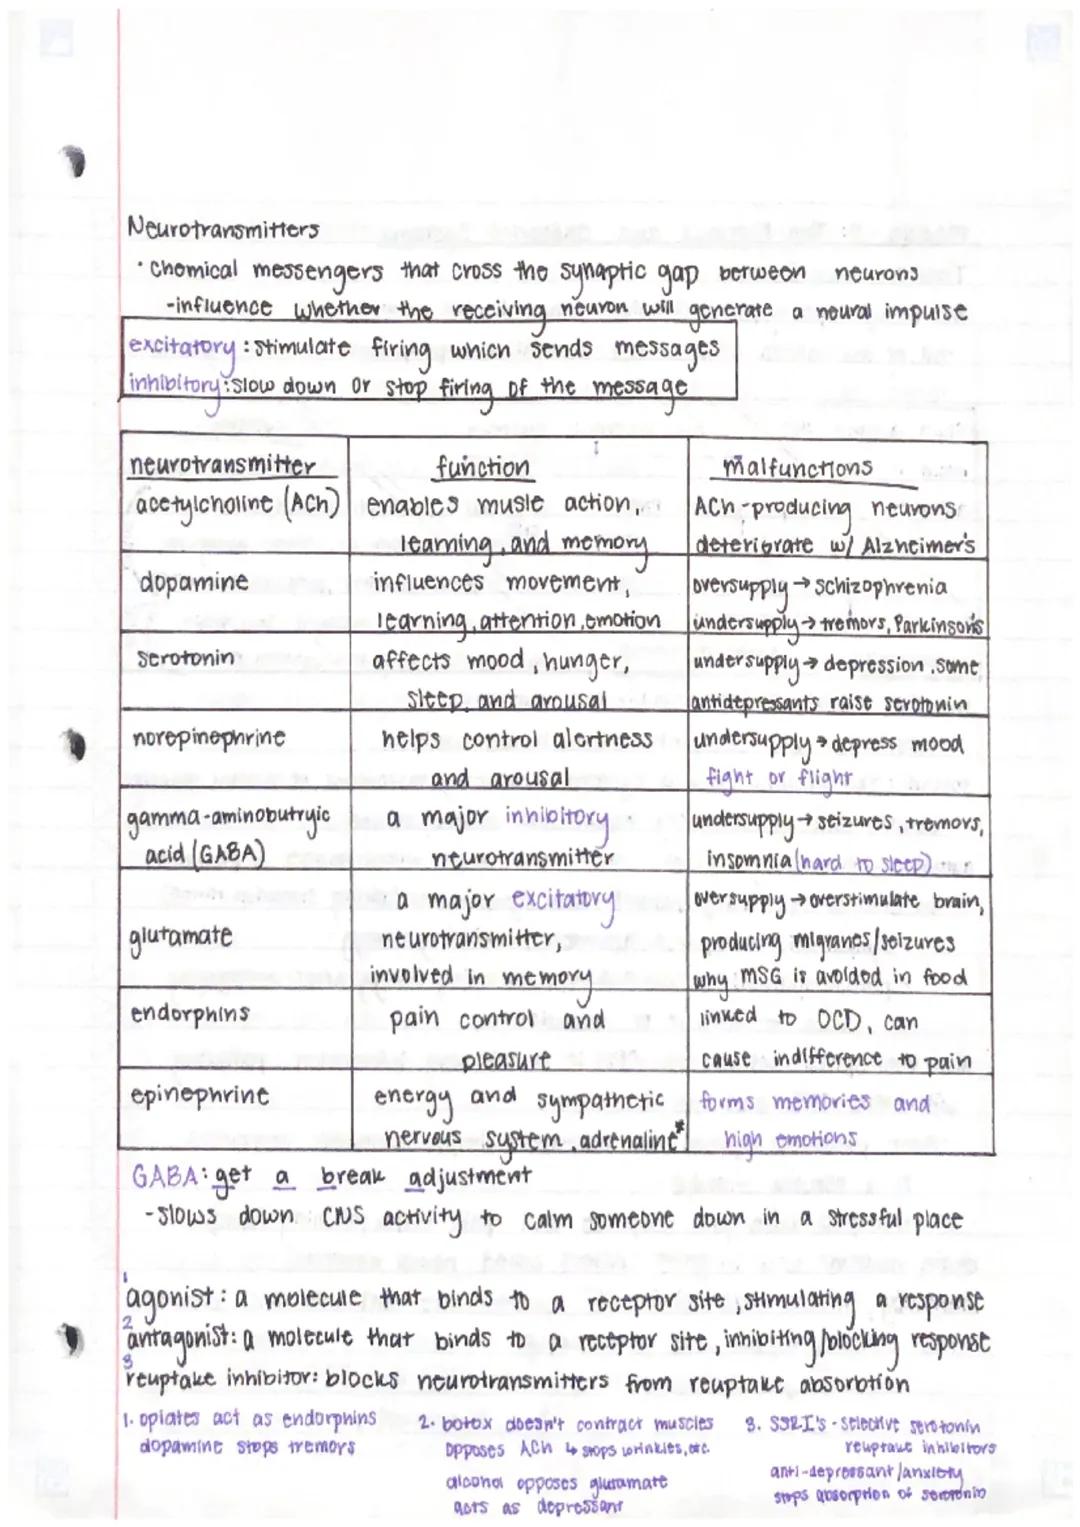 Neurotransmitters
· chemical messengers that cross the synaptic gap between neurons
-influence whether the receiving neuron will generate a neural impulse
excitatory: stimulate firing which sends messages
inhibitory: slow down or stop firing of the message
neurotransmitter function malfunctions
acetylcholine (ACh) enables musle action, ACh-producing neurons
learning, and memory deteriorate w/ Alzheimer's
dopamine influences movement, oversupply → schizophrenia
learning, attention, emotion undersupply → tremors, Parkinson's
serotonin affects mood, hunger, undersupply → depression, some
sleep, and arousal antidepressants raise serotonin
norepinephrine helps control alertness undersupply → depress mood
and arousal fight or flight
gamma-aminobutryic a major inhibitory undersupply → seizures, tremors,
acid (GABA) neurotransmitter insomnia (hard to sleep)
a major excitatory oversupply → overstimulate brain,
glutamate neurotransmitter, producing migranes/seizures
involved in memory why MSG is avoided in food
endorphins pain control and linked to OCD, can
pleasure cause indifference to pain
epinephrine energy and sympathetic forms memories and
nervous system, adrenaline* high emotions
GABA: get a break adjustment
-slows down CNS activity to calm someone down in a stressful place
1 agonist: a molecule that binds to a receptor site, stimulating a response
2 antagonist: a molecule that binds to a receptor site, inhibiting/blocking response
3 reuptake inhibitor: blocks neurotransmitters from reuptake, absorbtion
1. opiates act as endorphins 2. botox doesn't contract muscles 3. SSRI's - selective serotonin
dopamine stops tremors opposes ACh ↳ stops wrinkles, etc. reuptake inhibitors
alcohol opposes glutamate anti-depressant/anxiety
acts as depressant stops absorption of serotonin